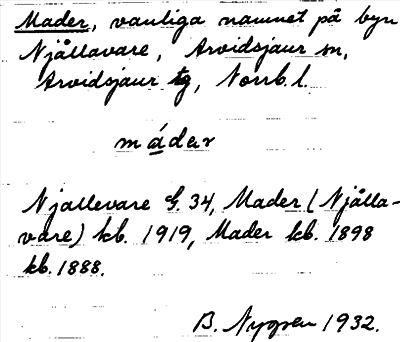 Mader, vanliga namnet på byn
Njållavare, Arvidsjaur sn,
Arvidsjaur tg, Norrb. l.
máder
Njallevare G. 34, Mader (Njålla-
vare) kb. 1919, Mader kb. 1898
kb. 1888.
B. Nygren 1932.